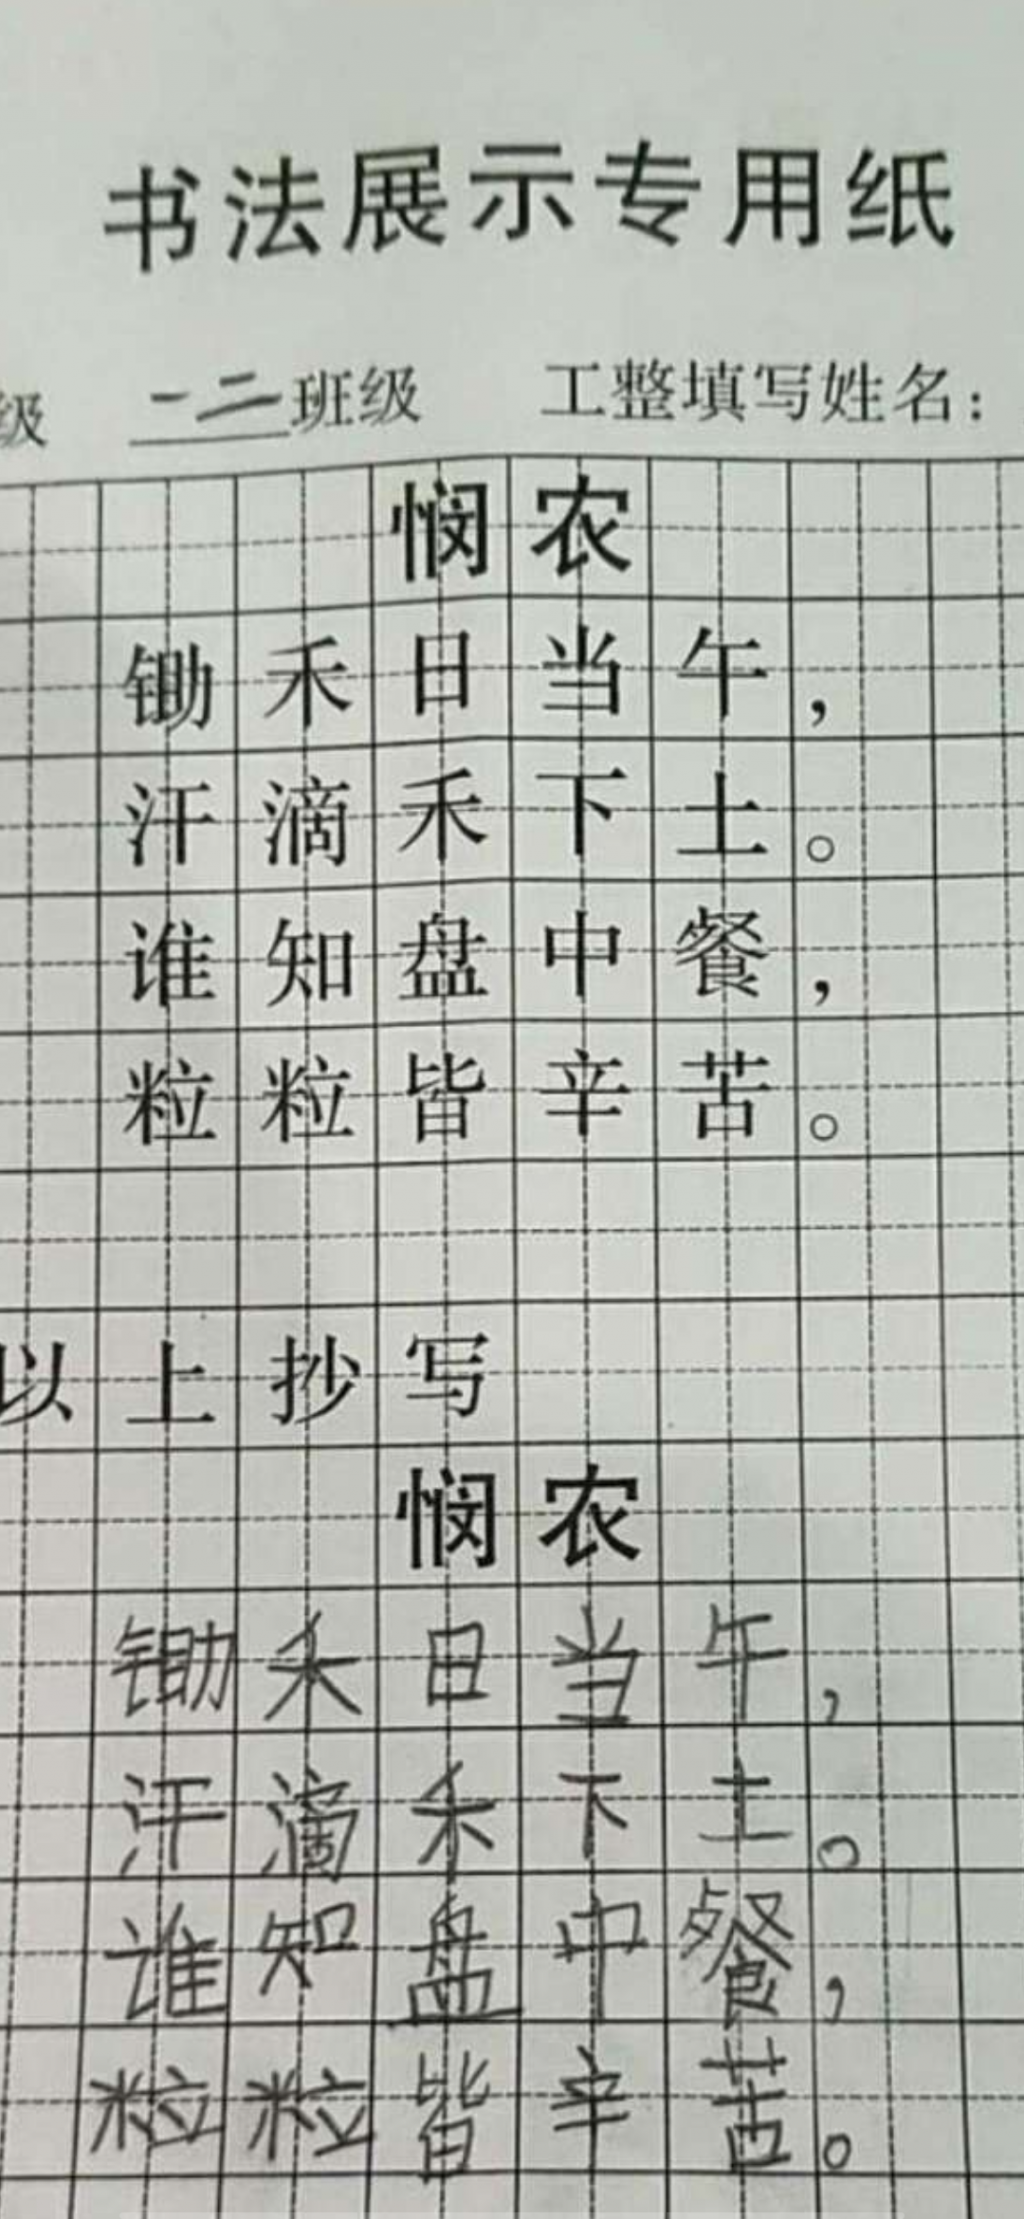 书法展示专用纸
级 一二班级 工整填写姓名：
悯农
锄禾日当午，
汗滴禾下土。
谁知盘中餐，
粒粒皆辛苦。
以上抄写
悯农
锄禾日当午，
汗滴禾下土。
谁知盘中餐，
粒粒皆辛苦。